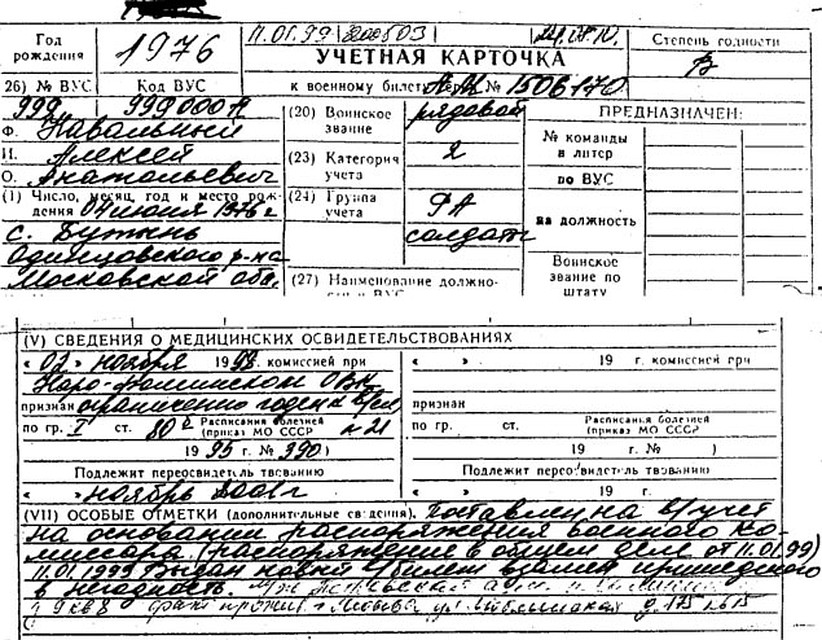 Год рождения
1976
11.01.99
УЧЕТНАЯ КАРТОЧКА
Степень годности
В
26) № ВУС Код ВУС
к военному билету № 1506170
999 999000А
Ф. Навальный
И. Алексей
О. Анатольевич
(1) Число, месяц, год и место рож-
дения 04 июня 1976 г.
с. Бутынь
Одинцовского р-на
Московской обл.
(20) Воинское звание
рядовой
(23) Категория учета
2
(24) Группа учета
РА
солдаты
(27) Наименование должно-
ПРЕДНАЗНАЧЕН:
№ команды
и литер
по ВУС
на должность
Воинское
звание по
штату
(V) СВЕДЕНИЯ О МЕДИЦИНСКИХ ОСВИДЕТЕЛЬСТВОВАНИЯХ
« 02 » ноября 1998. комиссией при
Наро-Фоминском ОВК
признан ограниченно годен к в/сл
по гр. I ст. 80 Расписания болезней
(приказ МО СССР
1995 г. № 390)
Подлежит переосвидетельствованию
« » ноябрь 2001 г
« » 19 г. комиссией при
признан
по гр. ст. Расписания болезней
(приказ МО СССР
19 г. № )
Подлежит переосвидетельствованию
« » 19 г.
(VII) ОСОБЫЕ ОТМЕТКИ (дополнительные сведения). Поставлен на в/учет
на основании распоряжения военного ко-
миссара (распоряжение в общем деле от 11.01.99)
11.01.1999 Выдан новый в/билет взамен пришедшего
в негодность.